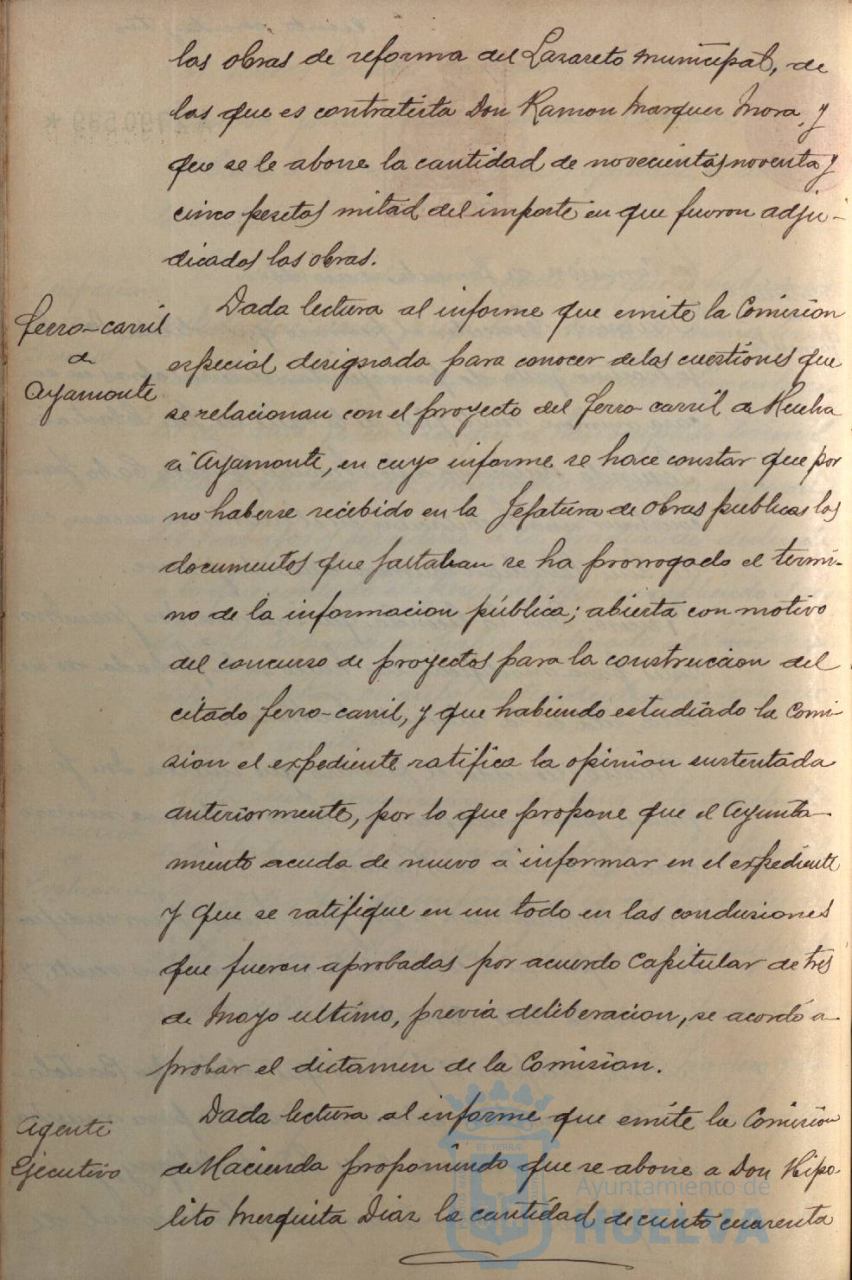 las obras de reforma del Lazareto municipal, de
las que es contratista Don Ramon Marquez Mora, y
que se le abone la cantidad de novecientas noventa y
cinco pesetas mitad del importe en que fueron adju-
dicados las obras.
Ferro-carril
de
Ayamonte
Dada lectura al informe que emite la Comision
especial designada para conocer de las cuestiones que
se relacionan con el proyecto del ferro-carril de Huelva
a Ayamonte, en cuyo informe se hace constar que por
no haberse recibido en la Jefatura de Obras publicas los
documentos que faltaban se ha prorrogado el termi-
no de la informacion pública; abierta con motivo
del concurso de proyectos para la construccion del
citado ferro-carril, y que habiendo estudiado la Comi-
sion el expediente ratifica la opinion sustentada
anteriormente, por lo que propone que el Ayunta-
miento acuda de nuevo a informar en el expediente
y que se ratifique en un todo en las conclusiones
que fueron aprobadas por acuerdo Capitular de tres
de Mayo ultimo, previa deliberacion, se acordó a-
probar el dictamen de la Comision.
Agente
Ejecutivo
Dada lectura al informe que emite la Comision
de Hacienda proponiendo que se abone a Don Hipo-
lito Mezquita Diaz la cantidad de ciento cuarenta
Ayuntamiento de
HUELVA